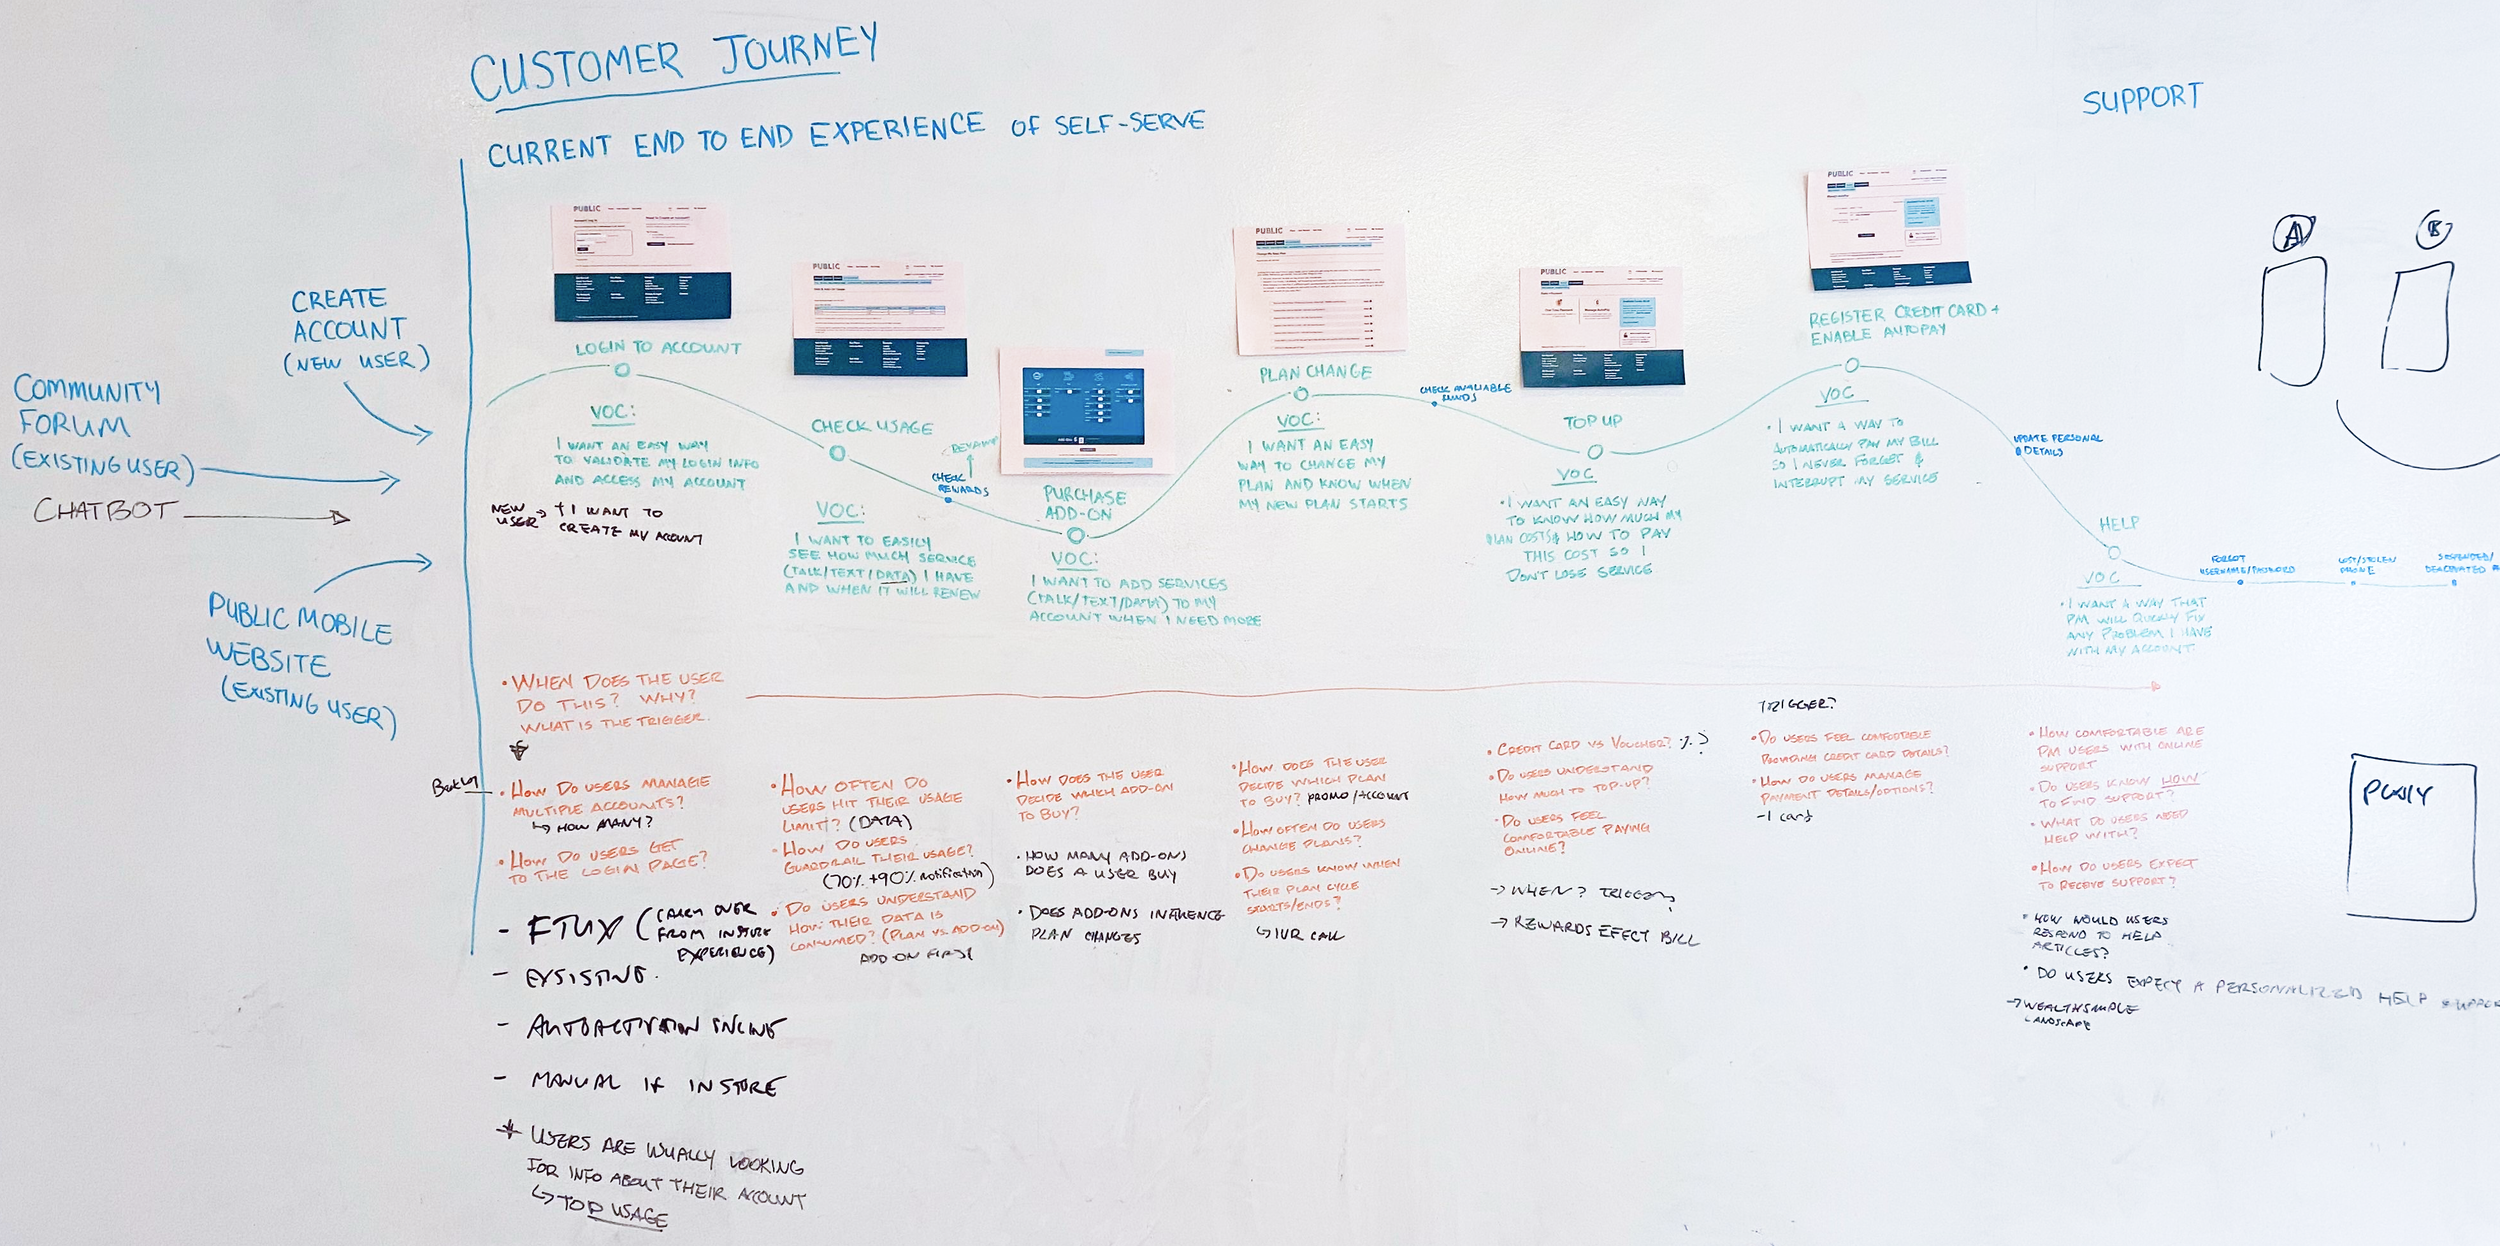 CUSTOMER JOURNEY
CURRENT END TO END EXPERIENCE OF SELF-SERVE
SUPPORT
CREATE
ACCOUNT
(NEW USER)
COMMUNITY
FORUM
(EXISTING USER)
CHATBOT
PUBLIC MOBILE
WEBSITE
(EXISTING USER)
PUBLIC
LOGIN TO ACCOUNT
VOC:
I WANT AN EASY WAY
TO VALIDATE MY LOGIN INFO
AND ACCESS MY ACCOUNT
NEW
USER
+ I WANT TO
CREATE MY ACOUNT
PUBLIC
CHECK USAGE
VOC:
I WANT TO EASILY
SEE HOW MUCH SERVICE
(TALK/TEXT/DATA) I HAVE
AND WHEN IT WILL RENEW
REVAMP
CHECK
REWARDS
PURCHASE
ADD-ON
VOC:
I WANT TO ADD SERVICES
(TALK/TEXT/DATA) TO MY
ACCOUNT WHEN I NEED MORE
PUBLIC
PLAN CHANGE
VOC:
I WANT AN EASY
WAY TO CHANGE MY
PLAN AND KNOW WHEN
MY NEW PLAN STARTS
CHECK AVALIABLE
FUNDS
PUBLIC
TOP UP
VOC
• I WANT AN EASY WAY
TO KNOW HOW MUCH MY
PLAN COSTS & HOW TO PAY
THIS COST SO I
DON'T LOSE SERVICE
PUBLIC
REGISTER CREDIT CARD +
ENABLE AUTOPAY
VOC
• I WANT A WAY TO
AUTOMATICALLY PAY MY BILL
SO I NEVER FORGET &
INTERRUPT MY SERVICE
UPDATE PERSONAL
DETAILS
HELP
VOC
• I WANT A WAY THAT
PM WILL QUICKLY FIX
ANY PROBLEM I HAVE
WITH MY ACCOUNT.
FORGOT
USERNAME/PASSWORD
LOST/STOLEN
PHONE
SUSPENDED/
DEACTIVATED
A
B
• WHEN DOES THE USER
DO THIS? WHY?
WHAT IS THE TRIGGER.
• HOW DO USERS MANAGE
MULTIPLE ACCOUNTS?
↳ HOW MANY?
• HOW DO USERS GET
TO THE LOGIN PAGE?
- FTUX (CARRY OVER
FROM INSTORE
EXPERIENCE)
- EXSISTING.
- AUTOACTIVATION ONLINE
- MANUAL IF INSTORE
* USERS ARE USUALLY LOOKING
FOR INFO ABOUT THEIR ACCOUNT
↳ TOP USAGE
• HOW OFTEN DO
USERS HIT THEIR USAGE
LIMIT? (DATA)
• HOW DO USERS
GUARDRAIL THEIR USAGE?
(70% + 90% notification)
• DO USERS UNDERSTAND
HOW THEIR DATA IS
CONSUMED? (PLAN VS ADD-ON)
ADD-ON FIRST
• HOW DOES THE USER
DECIDE WHICH ADD-ON
TO BUY?
• HOW MANY ADD-ONS
DOES A USER BUY
• DOES ADD-ONS INFLUENCE
PLAN CHANGES
• HOW DOES THE USER
DECIDE WHICH PLAN
TO BUY? PROMO/ACCOUNT
• HOW OFTEN DO USERS
CHANGE PLANS?
• DO USERS KNOW WHEN
THEIR PLAN CYCLE
STARTS/ENDS?
↳ IVR CALL
• CREDIT CARD VS VOUCHER? %?
• DO USERS UNDERSTAND
HOW MUCH TO TOP-UP?
• DO USERS FEEL
COMFORTABLE PAYING
ONLINE?
→ WHEN? TRIGGER?
→ REWARDS EFFECT BILL
TRIGGER?
• DO USERS FEEL COMFORTABLE
PROVIDING CREDIT CARD DETAILS?
• HOW DO USERS MANAGE
PAYMENT DETAILS/OPTIONS?
- 1 card
• HOW COMFORTABLE ARE
PM USERS WITH ONLINE
SUPPORT
• DO USERS KNOW HOW
TO FIND SUPPORT?
• WHAT DO USERS NEED
HELP WITH?
• HOW DO USERS EXPECT
TO RECEIVE SUPPORT?
• HOW WOULD USERS
RESPOND TO HELP
ARTICLES?
• DO USERS EXPECT A PERSONALIZED HELP
→ WEALTHSIMPLE
LANDSCAPE